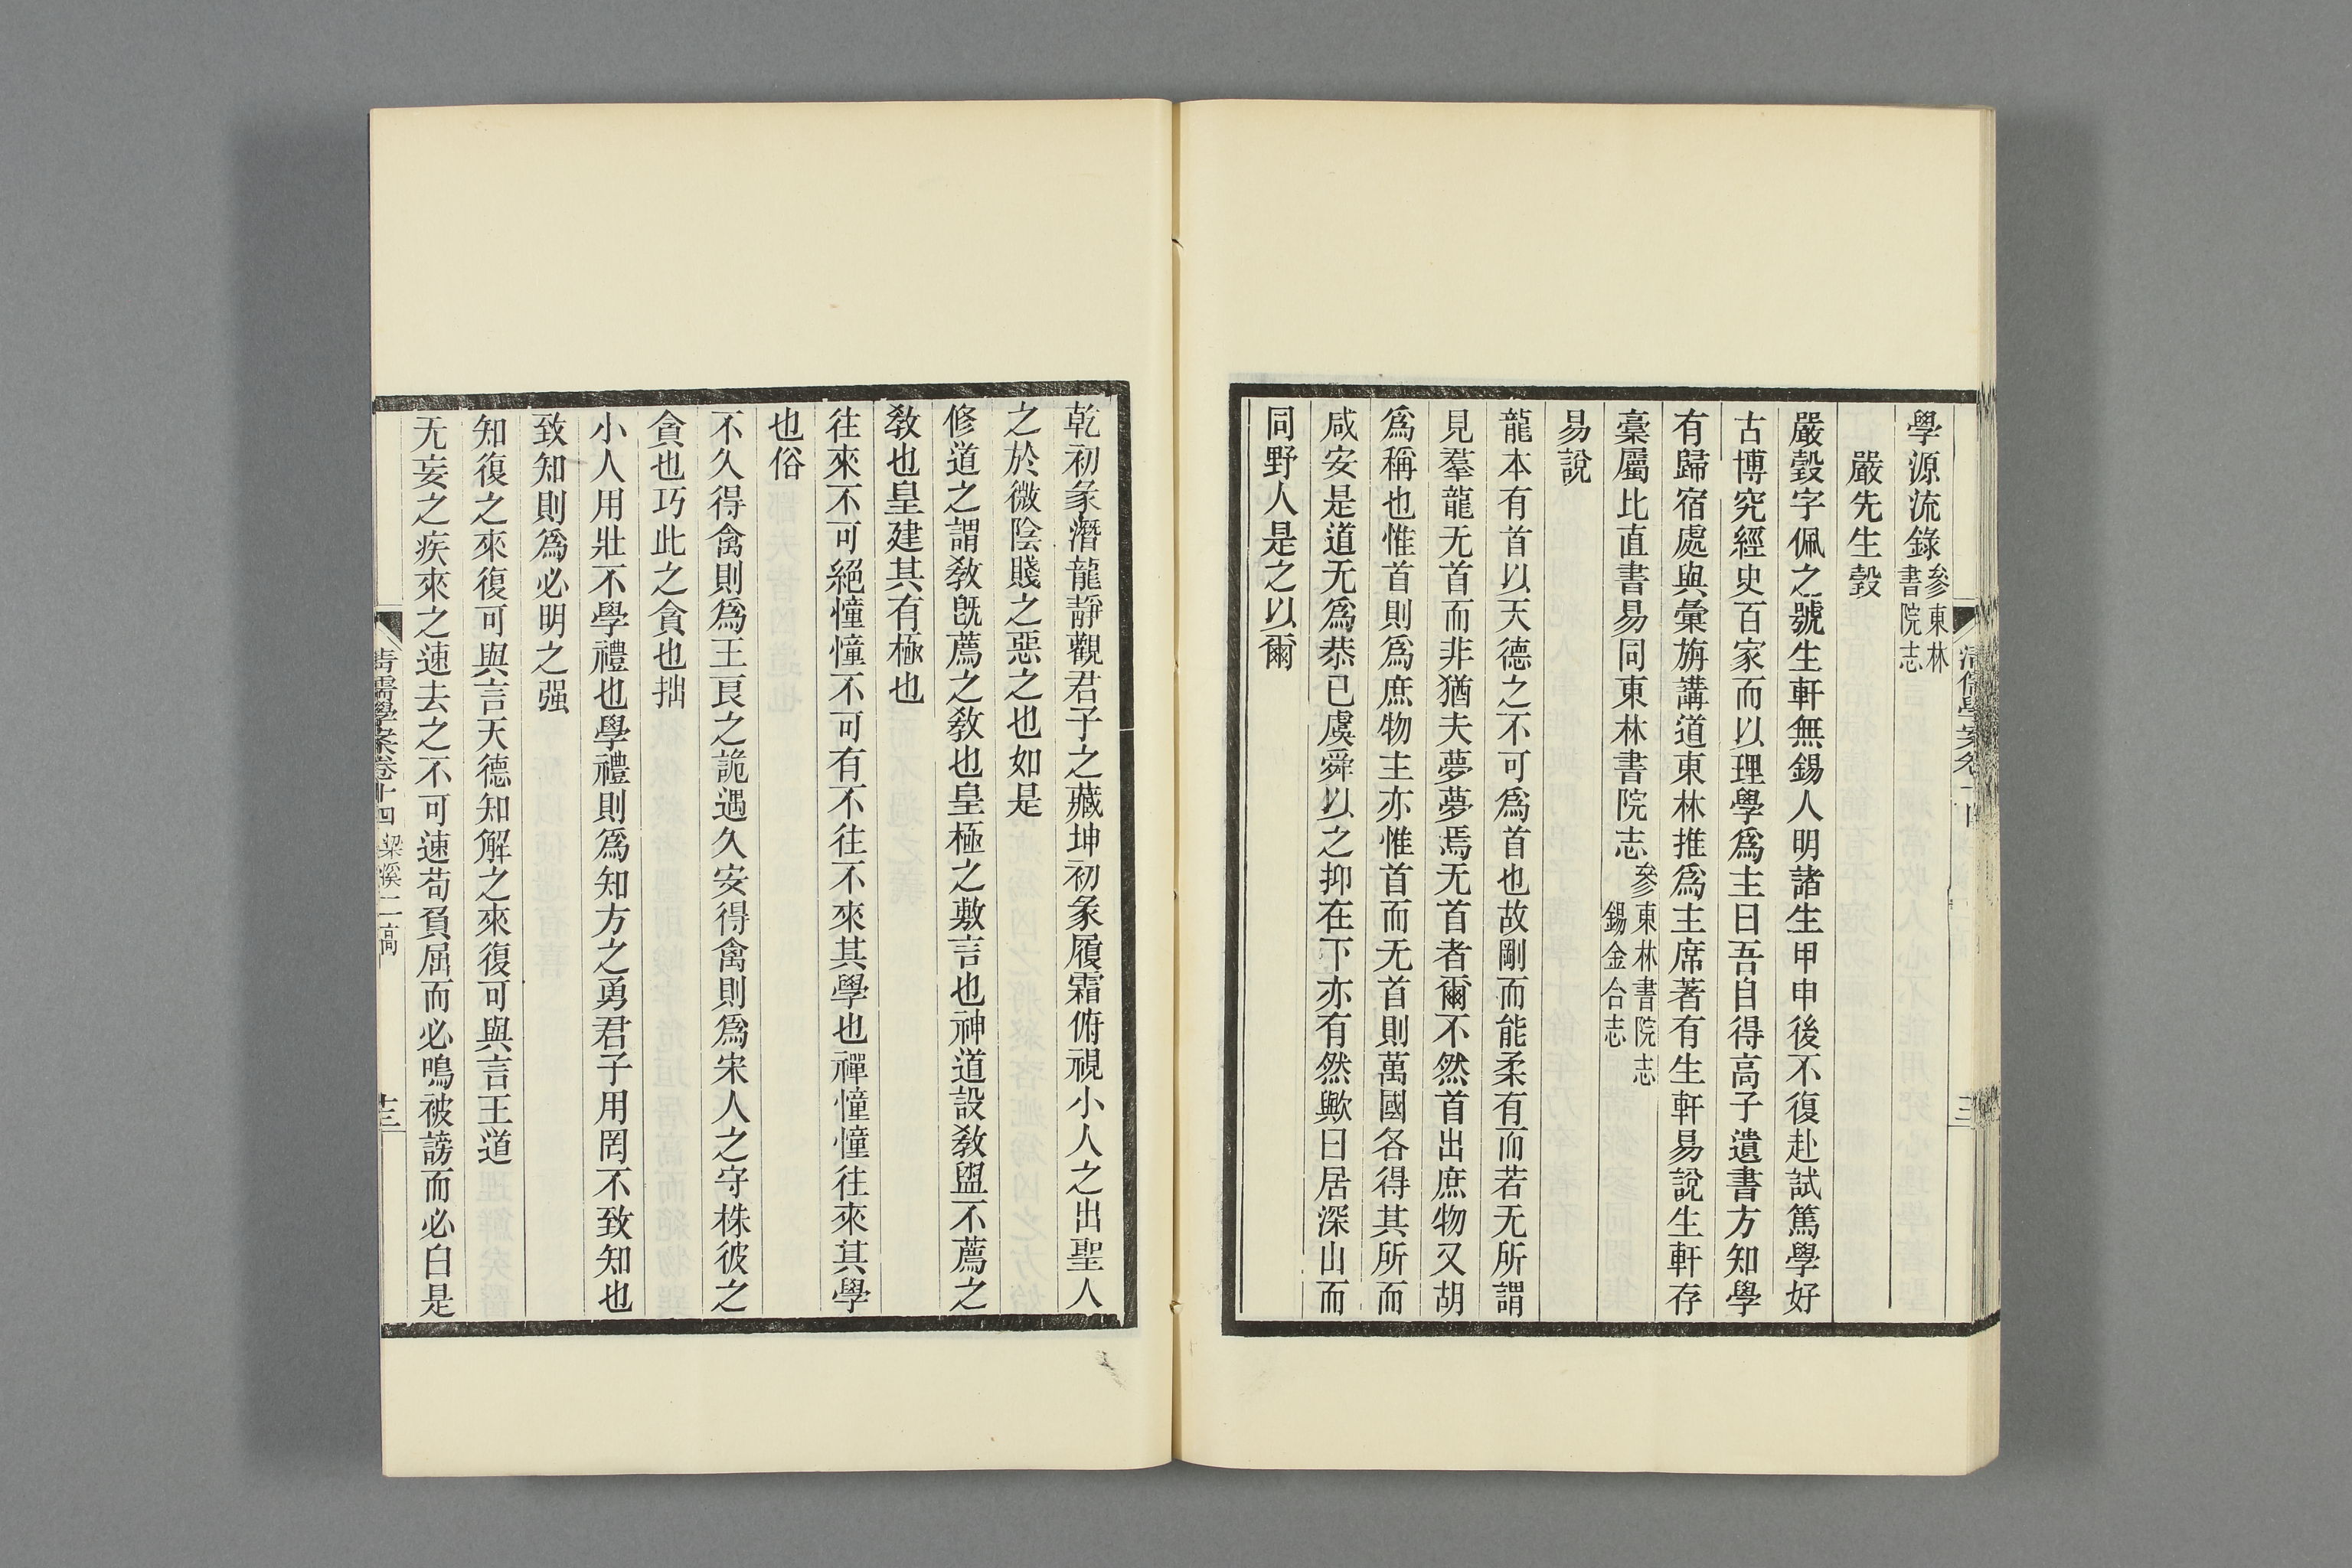 學源流錄參東林書院志
嚴先生瑴
嚴瑴字佩之號生軒無錫人明諸生甲申後不復赴試篤學好
古博究經史百家而以理學爲主曰吾自得高子遺書方知學
有歸宿處與彙旃講道東林推爲主席著有生軒易說生軒存
稾屬比直書易同東林書院志參東林書院志錫金合志
易說
龍本有首以天德之不可爲首也故剛而能柔有而若无所謂
見羣龍无首而非猶夫夢夢焉无首者爾不然首出庶物又胡
爲稱也惟首則爲庶物主亦惟首而无首則萬國各得其所而
咸安是道无爲恭已虞舜以之抑在下亦有然歟曰居深山而
同野人是之以爾
乾初象潛龍靜觀君子之藏坤初象履霜俯視小人之出聖人
之於微陰賤之惡之也如是
修道之謂敎旣薦之敎也皇極之敷言也神道設敎盥不薦之
敎也皇建其有極也
往來不可絕憧憧不可有不往不來其學也禪憧憧往來其學
也俗
不久得禽則爲王良之詭遇久安得禽則爲宋人之守株彼之
貪也巧此之貪也拙
小人用壯不學禮也學禮則爲知方之勇君子用罔不致知也
致知則爲必明之强
知復之來復可與言天德知解之來復可與言王道
无妄之疾來之速去之不可速苟負屈而必鳴被謗而必白是
清儒學案卷十四 梁溪二高
十三